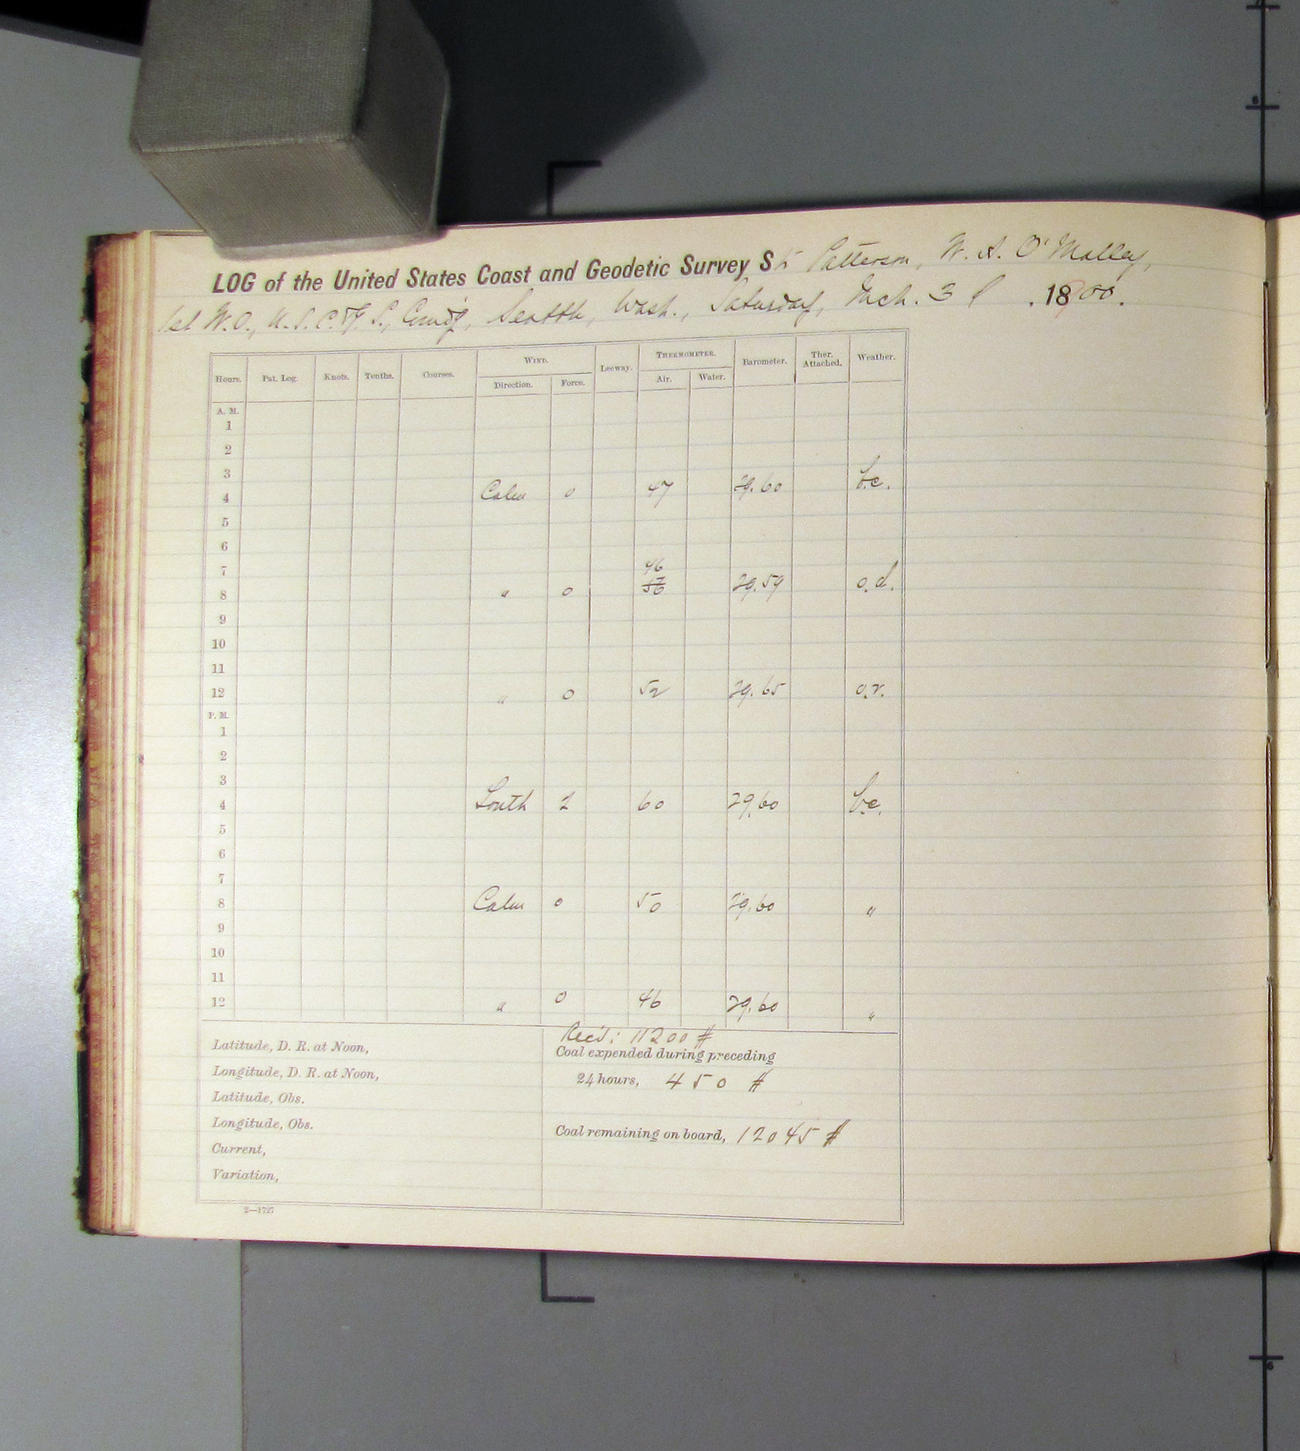 LOG of the United States Coast and Geodetic Survey Str Patterson, W. A. O'Malley,
1st W.O., U.S.C.&G.S., Comd'g, Seattle, Wash., Saturday, Mch. 31, 1900.
Hours. Pat. Log. Knots. Tenths. Courses. WIND. Leeway. THERMOMETER. Barometer. Ther. Attached. Weather.
Direction. Force. Air. Water.
A. M.
1
2
3
4 Calm 0 47 29.60 b.c.
5
6
7 46
8 " 0 29.59 o.d.
9
10
11
12 " 0 52 29.65 o.r.
P. M.
1
2
3
4 South 2 60 29.60 b.c.
5
6
7
8 Calm 0 50 29.60 "
9
10
11
12 " 0 46 29.60 "
Rec'd: 11200 #
Latitude, D. R. at Noon, Coal expended during preceding
Longitude, D. R. at Noon, 24 hours, 450 #
Latitude, Obs.
Longitude, Obs. Coal remaining on board, 12045 #
Current,
Variation,
2—1727